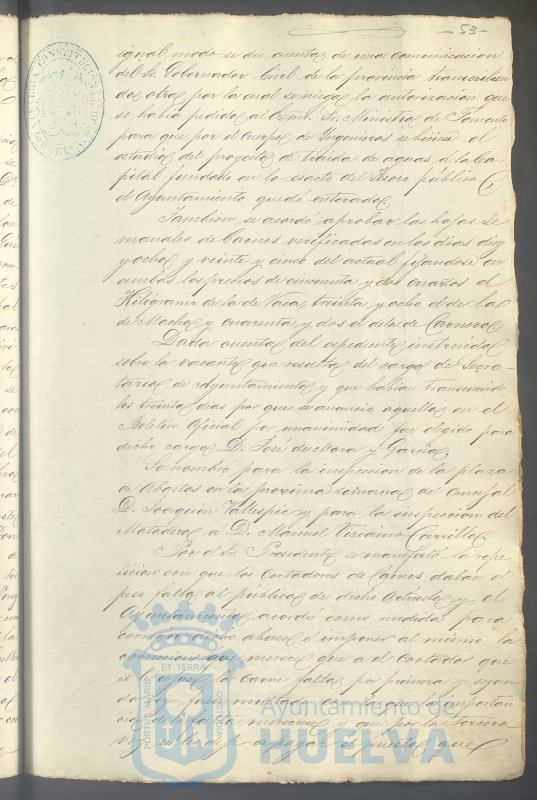 - 53 -
igual modo se dió cuenta de una comunicacion
del Sr. Gobernador Civil de la provincia transcribien
do otra por la cual se niega la autorizacion que
se habia pedido al Exmo. Sr. Ministro de Fomento
para que por el Cuerpo de Ingenieros se hiciese el
estudio del proyecto de traida de aguas á la Ca-
pital fundado en lo esacto del Tesoro público
el Ayuntamiento quedó enterado.
Tambien se acordó aprobar las hojas Se
manales de Carnes verificadas en los dias diez
y ocho y veinte y cinco del actual fijandose en
ambas los precios de cincuenta y dos cuartos el
Kilogramo de la de Vaca, treinta y ocho el de la
de Macho y cuarenta y dos el de la de Carnero.
Dada cuenta del espediente instruido
sobre la vacante que resulta del cargo de Secre-
tario de Ayuntamiento y que habian transcurrido
los treinta dias por que se anunció aquella en el
Boletin Oficial por unanimidad fue elegido para
dicho cargo D. José de Mora y Garcia.
Se nombró para la inspeccion de la plaza
de Abastos en la procsima semana al Concejal
D. Joaquin Vallespin y para la inspeccion del
Matadero á D. Manuel Vizcaino Carrillo.
Por el Sr. Presidente se manifestó la repe
ticion con que los Cortadores de Carnes daban el
peso falto al público de dicho articulo y el
Ayuntamiento acordó como medida para
corregir dicho abuso el imponer al mismo la
que merece que al Cortador que
se le la Carne falta por primera y segun
da vez
y que por la tercera
vez
PORTUS MARIS
ET TERRAE
CUSTODIA
Ayuntamiento de
HUELVA